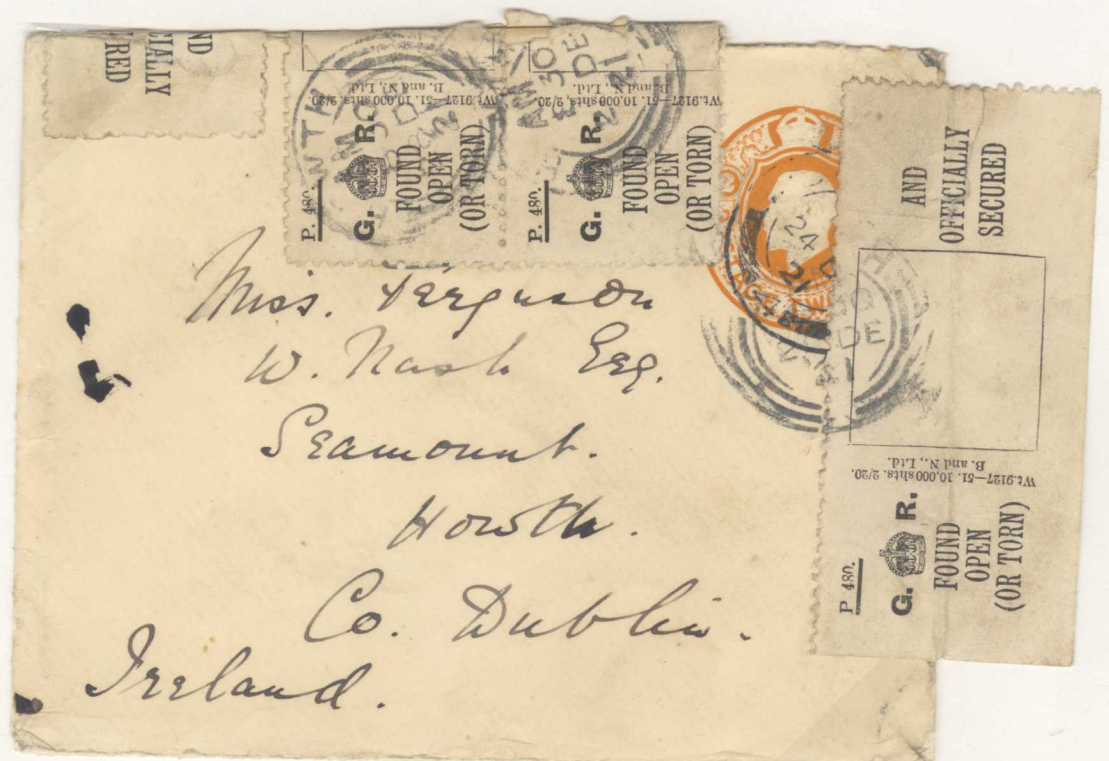 ND
CIALLY
RED
B. and N., Ltd.
Wt.9127—51. 10,000 shts. 2/20.
P. 480.
G. R.
FOUND
OPEN
(OR TORN)
B. and N., Ltd.
Wt.9127—51. 10,000 shts. 2/20.
P. 480.
G. R.
FOUND
OPEN
(OR TORN)
AM
30 DE
21
AND
OFFICIALLY
SECURED
Wt.9127—51. 10,000 shts. 2/20.
B. and N., Ltd.
P. 480.
G. R.
FOUND
OPEN
(OR TORN)
30 DE
21
Miss. Ferguson
W. Nash Esq.
Seamount.
Howth.
Co. Dublin.
Ireland.